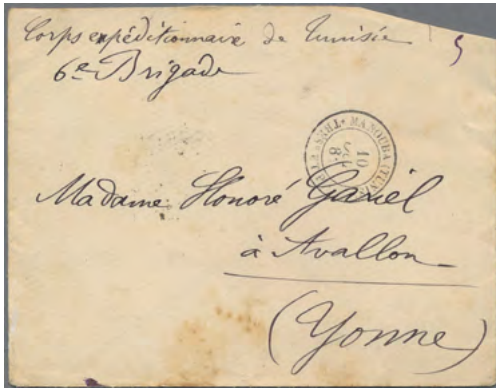 Corps expéditionnaire de Tunisie
6e Brigade
5
MANOUBA (TUNIS
10
8
Madame Honoré Gariel
à Avallon
(Yonne)